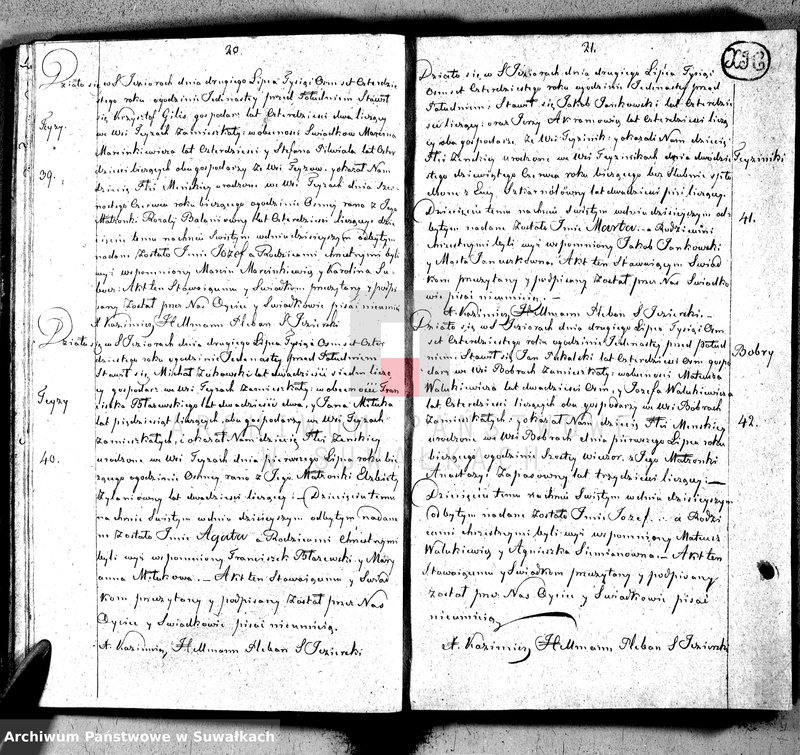 20.
Działo się w S Jeziorach dnia drugiego Lipca Tysiąc Osmset Czterdzie
stego roku ogodzinie Jedenastej przed Południem Stawił
się Krzysztof Gilis gospodarz lat Czterdzieści dwa liczący
we Wsi Tyzach Zamieszkały; w obecności Swiadkow Marcina
Marcinkiewicza lat Czterdzieści y Stefana lat Czter
dzieści liczących oba gospodarzy Ze Wsi y okazał Nam
Dziecię Płci Męskiej urodzone we Wsi Tyzach dnia
Czerwca roku bieżącego ogodzinie Osmej rano z Jego
Małżonki Rozalij lat Czterdzieści liczącej dzie
cięciu temu na chrzcie Swiętym wdniu dzisiejszym odbytym
nadane Zostało Imie Jozef a Rodzicami chrzestnymi byli
wyż wspomniony Marcin Marcinkiewicz y Karolina
Akt ten Stawaiącemu y Swiadkom przeczytany y podpi
sany Został przez Nas Oyciec y Swiadkowie pisać nieumieią
X. Kazimierz Hellmann Pleban S Jezierski
39.
Działo się w S Jeziorach dnia drugiego Lipca Tysiąc Osmset Czter
dziestego roku ogodzinie Jedenastej przed Południem
Stawił się Michał Żukowski lat dwadzieścia siedm liczą
cy gospodarz we Wsi Tyzach Zamieszkały; w obecności Fran
ciszka Błaszewskiego lat dwadzieścia dwa, y Jana Miluka
lat piędziesiąt liczących, oba gospodarzy we Wsi Tyzach
Zamieszkałych, i okazał Nam dziecię Płci Zenskiej
urodzone we Wsi Tyzach dnia pierwszego Lipca roku bie
żącego ogodzinie Osmej rano z Jego Małżonki Elzbiety
lat dwadzieścia liczącej. Dziecięciu temu
na chrzcie Swiętym wdniu dzisiejszym odbytym nadane
Zostało Imie Agata a Rodzicami Chrzestnymi
byli wyż wspomniony Franciszek Błaszewski y Mary
anna Milukowa. Akt ten Stawaiącemu y Swiad
kom przeczytany y podpisany Został przez Nas
Oyciec y Swiadkowie pisać nieumieią.
X. Kazimierz Hellmann Pleban S Jezierski
40.
21.
Działo się w S Jeziorach dnia drugiego Lipca Tysiąc
Osmset Czterdziestego roku ogodzinie Jedenastej przed
Południem Stawił się Jakob Jankowski lat Czterdzie
ści liczący; oraz Jerzy lat Czterdzieści liczą
cy oba gospodarze Ze Wsi y okazali Nam dziecię
Płci Zenskiej urodzone we Wsi dnia dwudzie
stego dziewiątego Czerwca roku bieżącego
z Ewy lat dwadzieścia pięć liczącej.
Dziecięciu temu na chrzcie Swiętym wdniu dzisiejszym od
bytym nadane Zostało Imie Marta. a Rodzicami
Chrzestnymi byli wyż wspomniony Jakob Jankowski
y Marta Akt ten Stawaiącym Swiad
kom przeczytany y podpisany Został przez Nas Swiadko
wie pisać nieumieią.
X. Kazimierz Hellmann Pleban S Jezierski.
41.
Działo się w S Jeziorach dnia drugiego Lipca Tysiąc Osm
set Czterdziestego roku ogodzinie Jedenastej przed Połud
niem; Stawił się Jan lat Czterdzieści Osm gospo
darz we Wsi Bobrach Zamieszkały; w obecności Mateusza
Walukiewicza lat dwadzieścia Osm, y Jozefa Walukiewicza
lat Czterdzieści liczących oba gospodarzy we Wsi Bobrach
Zamieszkałych; y okazał Nam dziecię Płci Męskiej
urodzone we Wsi Bobrach dnia pierwszego Lipca roku
bieżącego ogodzinie Szostej wieczor. z Jego Małżonki
Anastazyi lat trzydzieści liczącej;
Dziecięciu temu na chrzcie Swiętym wdniu dzisiejszym
odbytym nadane Zostało Imie Jozef. a Rodzi
cami chrzestnymi byli wyż wspomniony Mateusz
Walukiewicz y Agnieszka. Akt ten
Stawaiącemu y Swiadkom przeczytany y podpisany
Został przez Nas Oyciec y Swiadkowie pisać
nieumieią
X. Kazimierz Hellmann Pleban S Jezierski
Bobry
42.
Archiwum Państwowe w Suwałkach